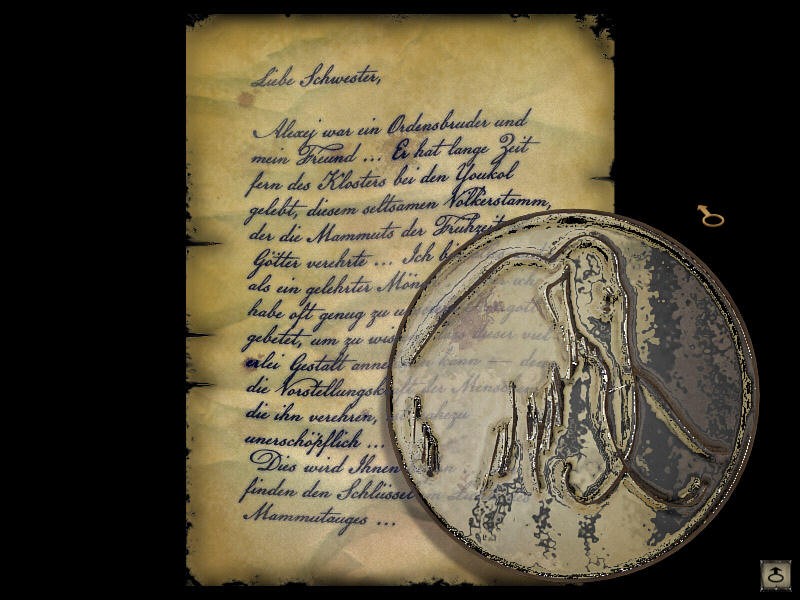 Liebe Schwester,
Alexej war ein Ordensbruder und
mein Freund ... Er hat lange Zeit
fern des Klosters bei den Youkol
gelebt, diesem seltsamen Volkerstamm,
der die Mammuts der Frühzeit
Götter verehrte ... Ich
als ein gelehrter
habe oft genug zu
gebetet, um zu dieser
erlei Gestalt kann —
die Vorstellungskraft der Menschen
die ihn verehren,
unerschöpflich ...
Dies wird Ihnen
finden den Schlüssel
Mammutauges ...